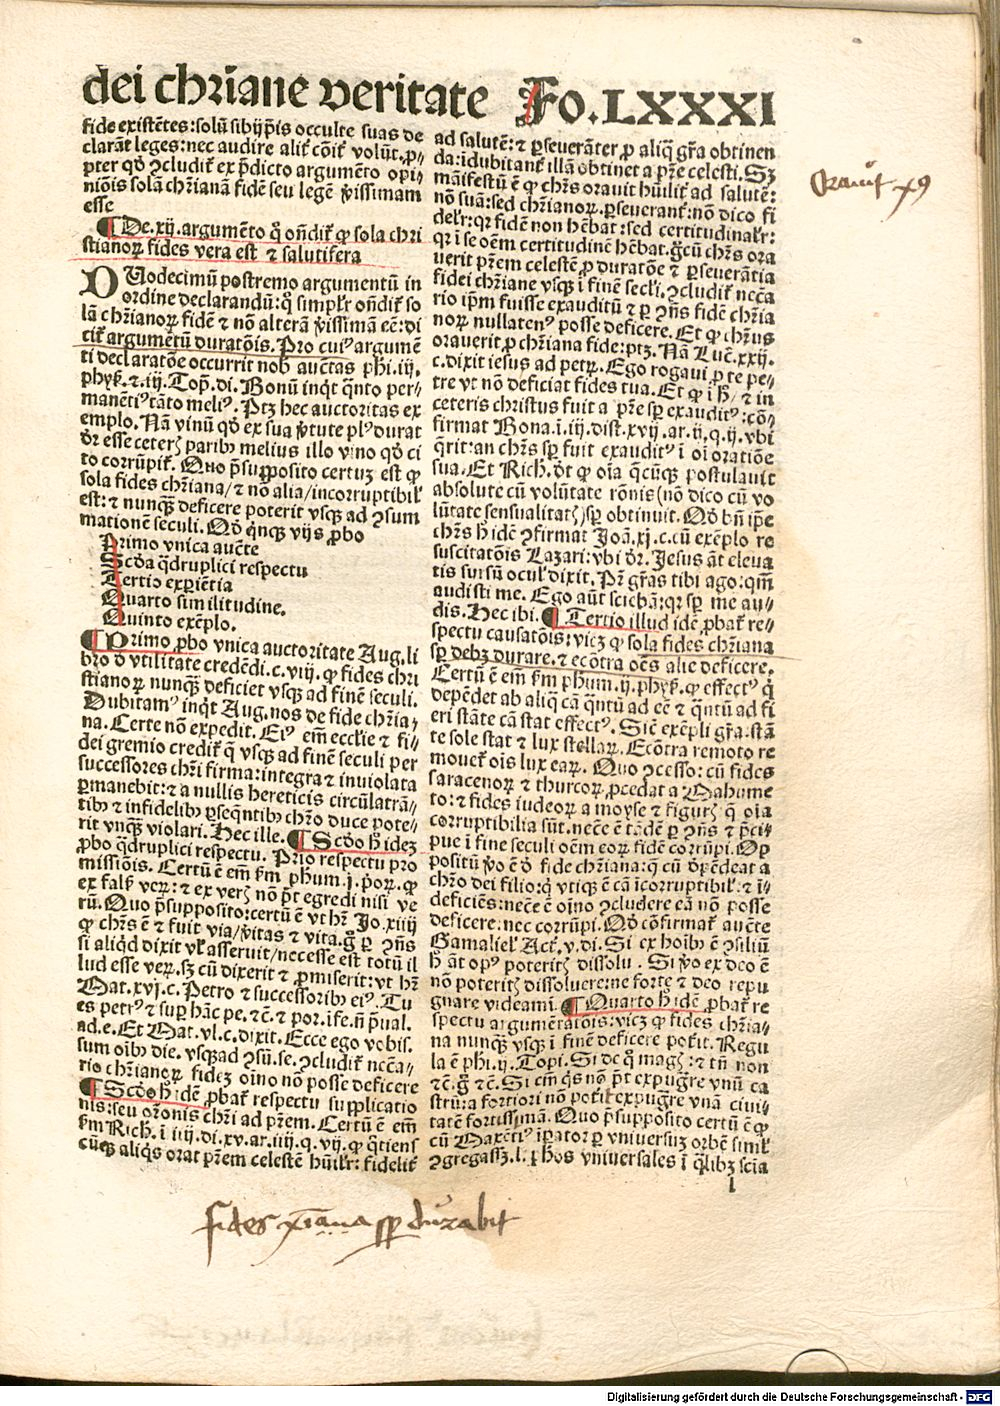 dei chr̄iane veritate Fo.LXXXXI
fide existētes:solū sibijp̄is occulte suas de
clarāt leges:nec audire aliť cōiť volūt.ꝓ⸗
pter qď ꝯcludiť ex p̄dicto argumēto opi⸗
niōis solā chr̄ianā fidē seu legē v̓issimam
esse
¶De.xij.argumēto q̇ oñdiť ꝙ sola chri
stianoꝝ fides vera est ⁊ salutifera
DUodecimū postremo argumentū in
ordine declarandū:q̇ simpľr oñdiť so
lā chr̄ianoꝝ fidē ⁊ nō alterā v̓issimā eē:di
ciť argumētū duratōis.Pro cuiꝰ argumē
ti declaratōe occurrit nob auc̄tas phi.iij.
phyꝭ.⁊.iij.Top̄.di.Bonū inqt q̄nto per⸗
manētiꝰ tāto meliꝰ.Ptꝫ hec auctoritas ex
emplo.Nā vinū qď ex sua v̓tute plꝰ durat
ďr esse ceterꝭ paribꝰ melius illo vino qď ci
to corrūpiť.Quo p̄supposito certuꝫ est ꝙ
sola fides chr̄iana/⁊ nō alia/incorruptibiľ
est:⁊ nunqꝫ deficere poterit vsqꝫ ad ꝯsum
mationē seculi.Qď qnqꝫ vijs ꝓbo
Primo vnica auc̄te
Scďa q̇druplici respectu
Tertio exꝑiētia
Quarto similitudine.
Quinto exēplo.
¶Primo ꝓbo vnica auctoritate Aug.li
bro ď vtilitate credēdi.c.viij.ꝙ fides chri
stianoꝝ nunqꝫ deficiet vsqꝫ ad finē seculi.
Dubitamꝰ inqt Aug.nos de fide chr̄ia⸗
na.Certe nō expedit.Eiꝰ em̄ eccľie ⁊ fi⸗
dei gremio crediť q̄ vsqꝫ ad finē seculi per
successores chr̄i firma:integra ⁊ inuiolata
ꝑmanebit:⁊ a nullis hereticis circūlatrā⸗
tibꝰ ⁊ infidelibꝰ ꝑseq̄ntibꝰ chr̄o duce pote⸗
rit vnqꝫ violari.Hec ille.¶Scďo h̓ ideꝫ
ꝓbo q̇druplici respectu.Prīo respectu pro
missiōis.Certū ē em̄ ẜm phum.j.p̓oꝝ.ꝙ
ex falẜ veꝝ:⁊ ex verꝭ nō p̄t egredi nisi ve
rū.Quo p̄supposito:certū ē vt hꝫ Jo.xiiij
ꝙ chr̄s ē ⁊ fuit via/v̓itas ⁊ vita.g̊ ꝑ ꝯñs
si aliqd dixit vľ asseruit/necesse est totū il
lud esse veꝝ.sꝫ cū dixerit ⁊ ꝓmiserit:vt hꝫ
Mat.xvj.c.Petro ⁊ successoribꝰ eiꝰ.Tu
es petrꝰ ⁊ suꝑ hāc pe.⁊c̄.⁊ por.ife.ñ p̄ual.
ad.e.Et Mat.vl.c.dixit.Ecce ego vobis.
sum oībꝰ die.vsqꝫad ꝯsū.se.ꝯcludiť necā⸗
rio chr̄ianoꝝ fideꝫ oīno nō posse deficere
¶Scďo h̓ idē ꝓbať respectu supplicatio
nis:seu oȓonis chr̄i ad pr̄em.Certū ē em̄
ẜm Rich.ī iiij.di.xv.ar.iiij.q.vij.ꝙ q̇tiens
cūqꝫ aliqs orat pr̄em celestē hūiľr:fideliť
ad salutē:⁊ ꝑseuerāter,ꝓ aliq̇ gr̄a obtinen
da:idubitanť illā obtinet a pr̄e celesti.Sꝫ
māifestū ē ꝙ chr̄s orauit hūiliť ad salutē:
nō suā:sed chr̄ianoꝝ.ꝑseuerant̓:nō dico fi
deľr:qꝛ fidē non hēbat:sed certitudinaľr:
qꝛ ī se oēm certitudinē hēbat.g̊cū chr̄s ora
uerit pr̄em celestē ꝓ duratōe ⁊ ꝑseuerātia
fidei chr̄iane vsqꝫ ī finē secľi.ꝯcludiť necā
rio ip̄m fuisse exauditū ⁊ ꝑ ꝯñs fidē chr̄ia
noꝝ nullatenꝰ posse deficere.Et ꝙ chr̄us
orauerit ꝓ chr̄iana fide:ptꝫ.Nā Luc̄.xxij.
c.dixit iesus ad petꝝ.Ego rogaui ꝓ te pe⸗
tre vt nō deficiat fides tua.Et ꝙ ī h̓/⁊ in
ceteris christus fuit a pr̄e sꝑ exauditꝰ:cō⸗
firmat Bona.ī.iij.dist.xvij.ar.ij.q.ij.vbi
q̄rit:an chr̄s sꝑ fuit exauditꝰ ī oī oratiōe
sua.Et Rich.ďt ꝙ oīa q̄cūqꝫ postulauit
absolute cū volūtate rōnis(nō dico cū vo
lūtate sensualitatꝭ)sꝑ obtinuit.Qď bn̄ ip̄e
chr̄s h̓ idē ꝯfirmat Joā.xj.c.cū exēplo re
suscitatōis Lazari:vbi ďr.Jesus āt eleua
tis sursū ocuľ dixit.Pr̄ gr̄as tibi ago:qm̄
audisti me.Ego aūt sciebā:qꝛ sꝑ me au⸗
dis.Hec ibi.¶Tertio illud idē ꝓbať re⸗
spectu causatōis:vicꝫ ꝙ sola fides chr̄iana
sꝑ debꝫ durare.⁊ ecōtra oēs alie deficere.
Certū ē em̄ ẜm phum.ij.phyꝭ.ꝙ effectꝰ q̇
depēdet ab aliq̇ cā q̄ntū ad eē ⁊ q̄ntū ad fi
eri stāte cā stat effectꝰ.Sic̄ exēpli gr̄a:stā
te sole stat ⁊ lux stellaꝝ.Ecōtra remoto re
mouet̓ oīs lux eaꝝ.Quo ꝯcesso:cū fides
saracenoꝝ ⁊ thurcoꝝ ꝓcedat a Mahume
to:⁊ fides iudeoꝝ a moyse ⁊ figurꝭ q̄ oīa
corruptibilia sūt.necē ē tādē ꝑ ꝯñs ⁊ p̄ci⸗
pue ī fine seculi oēm eoꝝ fidē corrūpi.Op
positū v̓o ē ď fide chr̄iana:q̄ cū ďpēdeat a
chr̄o dei filio:q̇ vtiqꝫ ē cā īcorruptibiľ.⁊ ī⸗
deficiēs:necē ē oīno ꝯcludere eā nō posse
deficere:nec corrūpi.Qď cōfirmať auc̄te
Gamalieľ Act̓.v.di.Si ex hoībꝰ ē ꝯsiliū
h̓ āt opꝰ poteritꝭ dissolu. Si v̓o ex deo ē
nō poteritꝭ dissoluere:ne forte ⁊ deo repu
gnare videami.¶Quarto h̓ idē ꝓbať re
spectu argumētatōis:vicꝫ ꝙ fides chr̄ia⸗
na nunqꝫ vsqꝫ ī finē deficere poťit.Regu
la ē phi.ij.Topi.Si de q̇ magꝭ:⁊ tñ non
⁊c̄.g̊ ⁊c̄.Si em̄ qs nō p̄t expug̓re vnū ca
strū:a fortiori nō poťit expug̓re vnā ciui⸗
tatē fortissimā.Quo p̄supposito certū ē ꝙ
cū Maxētiꝰ īꝑator ꝑ vniuersuꝫ orbē simľ
ꝯgregasꝫ.l.phos vniuersales ī q̇libꝫ scia
l
Orauit xꝰ
fides xiana sꝑ durabit
Digitalisierung gefördert durch die Deutsche Forschungsgemeinschaft - DFG